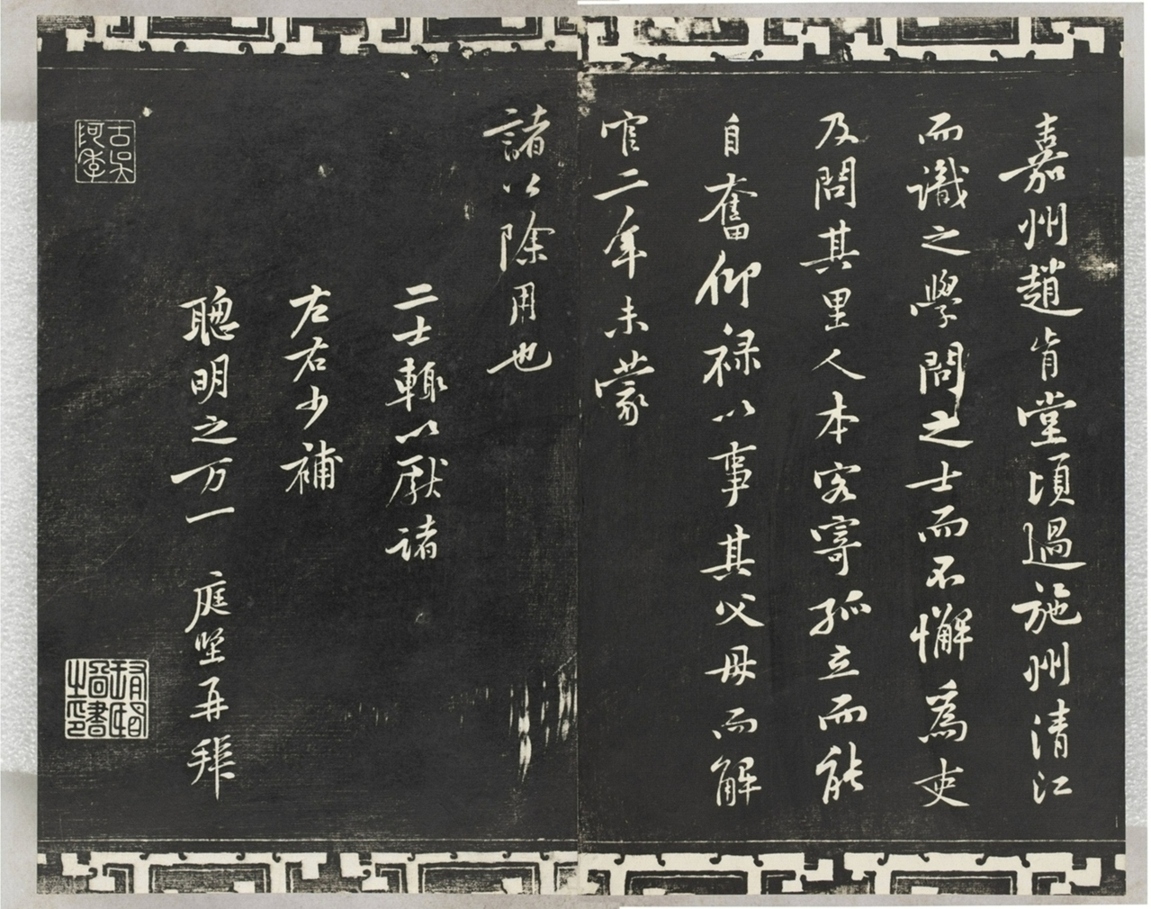 嘉州趙肯堂頃過施州清江
而識之學問之士而不懈為吏
及問其里人本客寄孤立而能
自奮仰祿以事其父母而解
官二年未蒙
諸以除用也
二士輒以厭諸
左右少補
聰明之万一 庭堅再拜
古吳
阿季